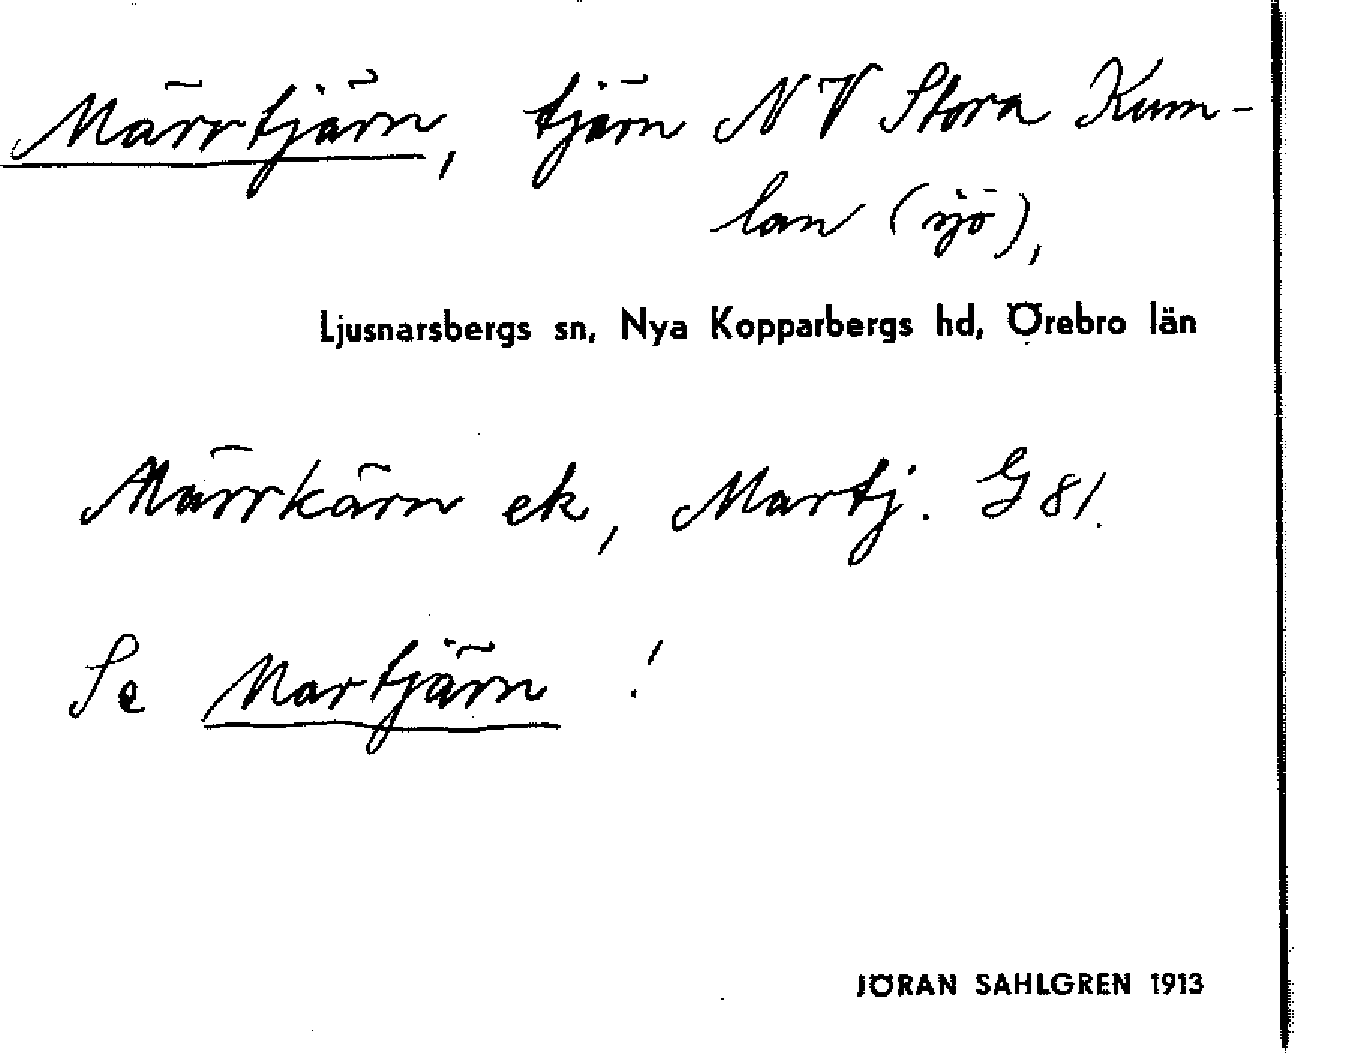 Märrtjärn, tjärn NV Stora Kum-
lan (sjö),
Ljusnarsbergs sn, Nya Kopparbergs hd, Örebro län
Märrkärn ek, Martj. G 81.
Se Martjärn !
JÖRAN SAHLGREN 1913